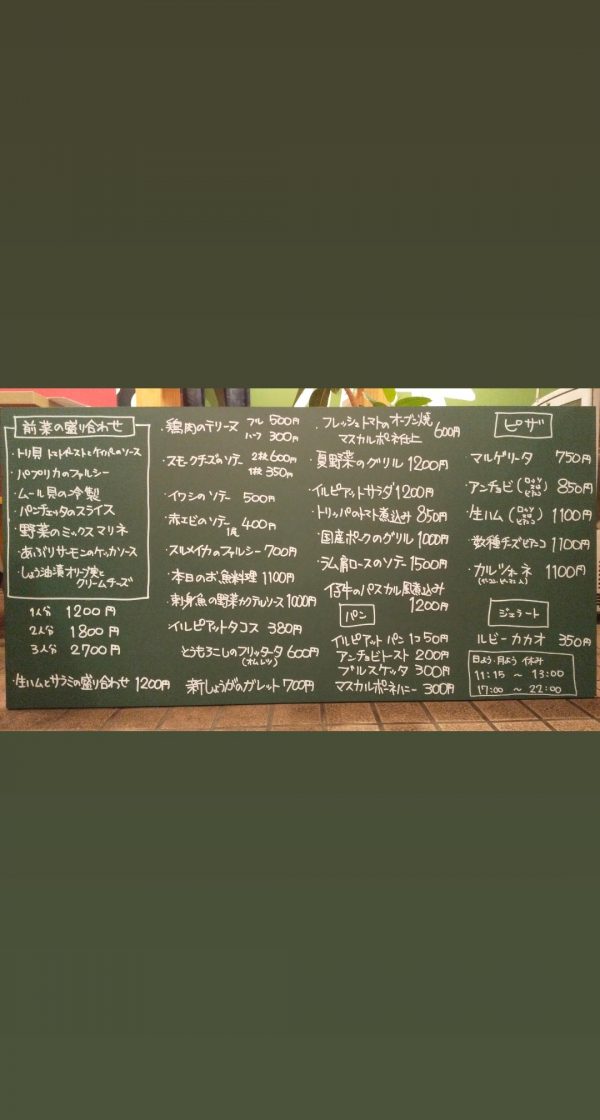 前菜の盛り合わせ
・トリ貝 トマトペーストとケイパーのソース
・パプリカのファルシー
・ムール貝の冷製
・パンチェッタのスライス
・野菜のミックスマリネ
・あぶりサーモンのケッカソース
・しょう油漬オリーブ実と
クリームチーズ
1人分 1200円
2人分 1800円
3人分 2700円
・生ハムとサラミの盛り合わせ 1200円
・鶏肉のテリーヌ フル 500円
ハーフ 300円
・スモークチーズのソテー 2枚 600円
1枚 350円
・イワシのソテー 500円
・赤エビのソテー 1尾 400円
・スルメイカのファルシー 700円
・本日のお魚料理 1100円
・刺身魚の野菜カクテルソース 1000円
・イルピアットタコス 380円
とうもろこしのフリッタータ 600円
(オムレツ)
新しょうがのガレット 700円
・フレッシュトマトのオーブン焼
マスカルポーネ仕上 600円
・夏野菜のグリル 1200円
・イルピアットサラダ 1200円
・トリッパのトマト煮込み 850円
・国産ポークのグリル 1000円
・ラム肩ロースのソテー 1500円
・仔牛のパスカル風煮込み
1200円
パン
イルピアット パン 1コ 50円
アンチョビトースト 200円
ブルスケッタ 300円
マスカルポーネハニー 300円
ピザ
マルゲリータ 750円
・アンチョビ 850円
・生ハム 1100円
・数種チーズビアンコ 1100円
・カルツォーネ 1100円
ジェラート
ルビーカカオ 350円
日よう・月よう 休み
11:15 ～ 13:00
17:00 ～ 22:00